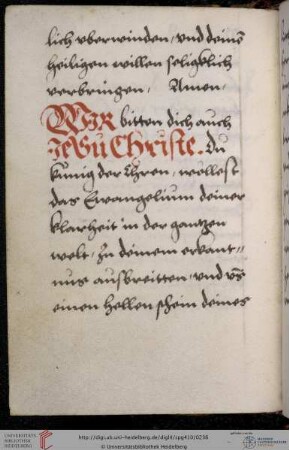 lich vberwinden, vnd deinē
heiligen willen seligklich
verbringen, Amen.
WIR bitten dich auch
JESU Christe. Du
kunig der Ehren, wullest
das Ewangelium deiner
klarheit in der gantzen
welt, zu deinem erkant=
nus ausbreitten, vnd vns
einen hellen schein deines
UNIVERSITÄTS-
BIBLIOTHEK
HEIDELBERG
http://digi.ub.uni-heidelberg.de/diglit/cpg450/0236
© Universitätsbibliothek Heidelberg